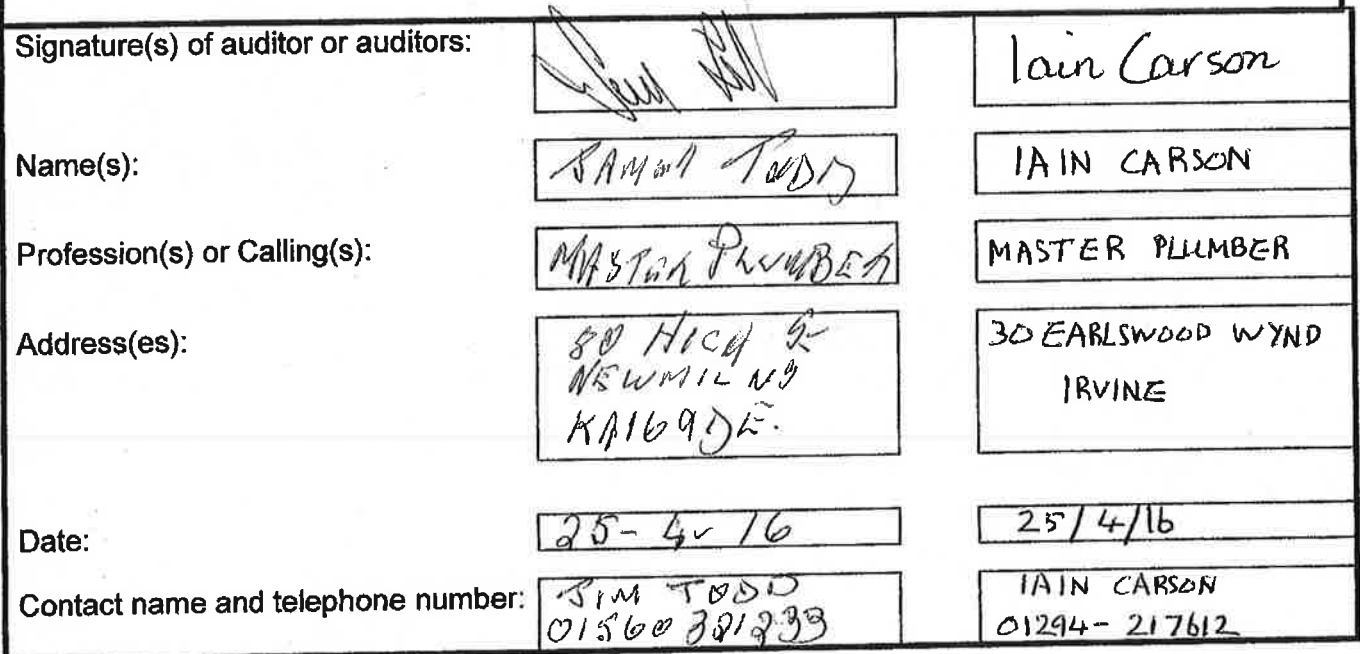 Signature(s) of auditor or auditors:
Iain Carson
Name(s):
TODD
IAIN CARSON
Profession(s) or Calling(s):
MASTER PLUMBER
MASTER PLUMBER
Address(es):
80 HIGH ST
NEWMILNS
KA16 9DE.
30 EARLSWOOD WYND
IRVINE
Date:
25-4-16
25/4/16
Contact name and telephone number:
JIM TODD
01560 321233
IAIN CARSON
01294-217612